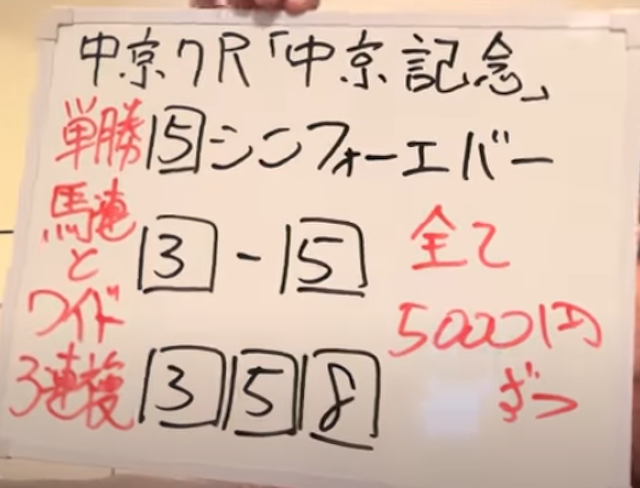 中京7R「中京記念」
単勝 5 シンフォーエバー
馬連とワイド 3 - 5
3連複 3 5 8
全て
5000円
ずつ